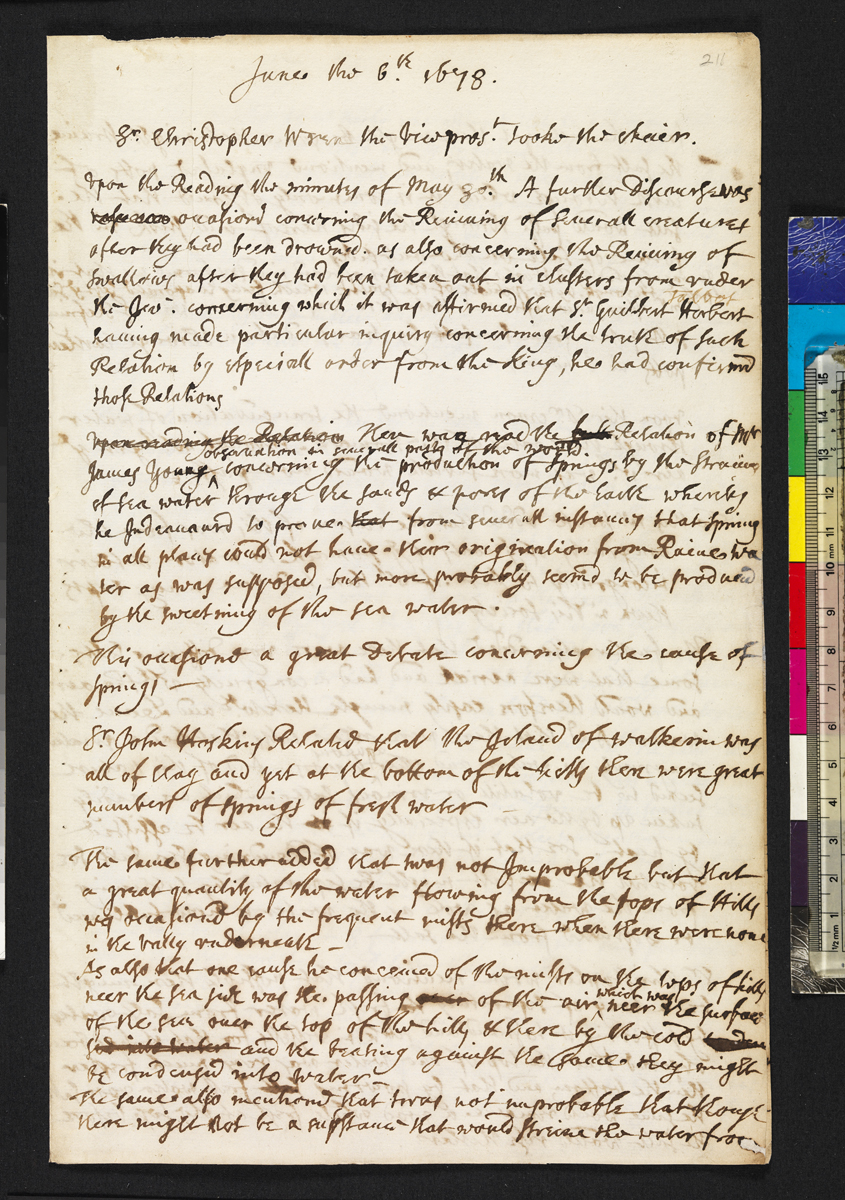 211
June the 6.th 1678.
Sr. Christopher Wren the Vice prest. tooke the chair.
Upon the Reading the minutes of May 30.th A further Discourse was
occasiond concerning the Reviuing of seuerall creatures
after they had been drownd. as also concerning the Reuiuing of
swallows after they had been taken out in clusters from vnder
Talbot
the Jce. concerning which it was affirmed that Sr. Guilbert Herbert
hauing made particular inquiry concerning the truth of such
Relation by especiall order from the King, he had confirmd
those Relations
upon reading the Relation Here was read the Relation of Mr
obseruation in seuerall parts of the world.
James Young concerning the production of springs by the Straining
of sea water through the sands & pores of the Earth whereby
he Indeauourd to proue that from seuerall instances that springs
in all places could not haue their origination from Raine wa
ter as was supposed, but more probably seemd to be produced
by the sweetning of the sea water.
This occasiond a great Debate concerning the cause of
springs —
Sr. John Hoskins Related that the Island of was
all of slag and yet at the bottom of the hills there were great
numbers of springs of fresh water —
The same further added that twas not Improbable but that
a great quantity of the water flowing from the tops of Hills
was occasiond by the frequent mists there when there were none
in the vally underneath —
As also that one cause he conceiued of the mists on the tops of hills
neer the sea side was the passing ouer of the air which was neer the surface
of the sea ouer the top of the hills & there by the cold
sed into water and the beating against the same they might
be condensed into water —
The same also mentiond that twas not improbable that though
there might not be a substance that would streine the water from